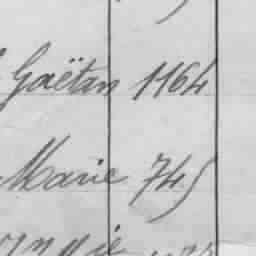 Gaëtan 1164
Marie 745